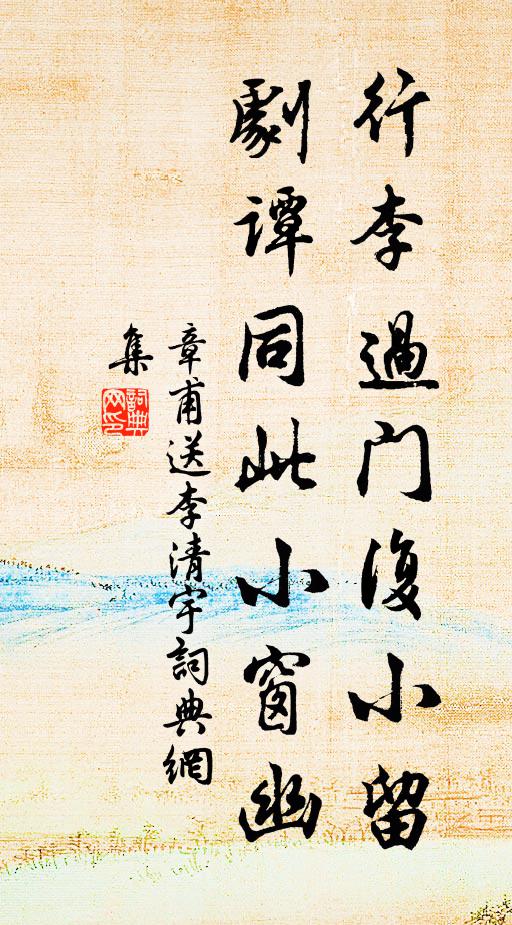 行李過門復小留
劇譚同此小窗幽
章甫送李清宇詞典網
集
詞典網印